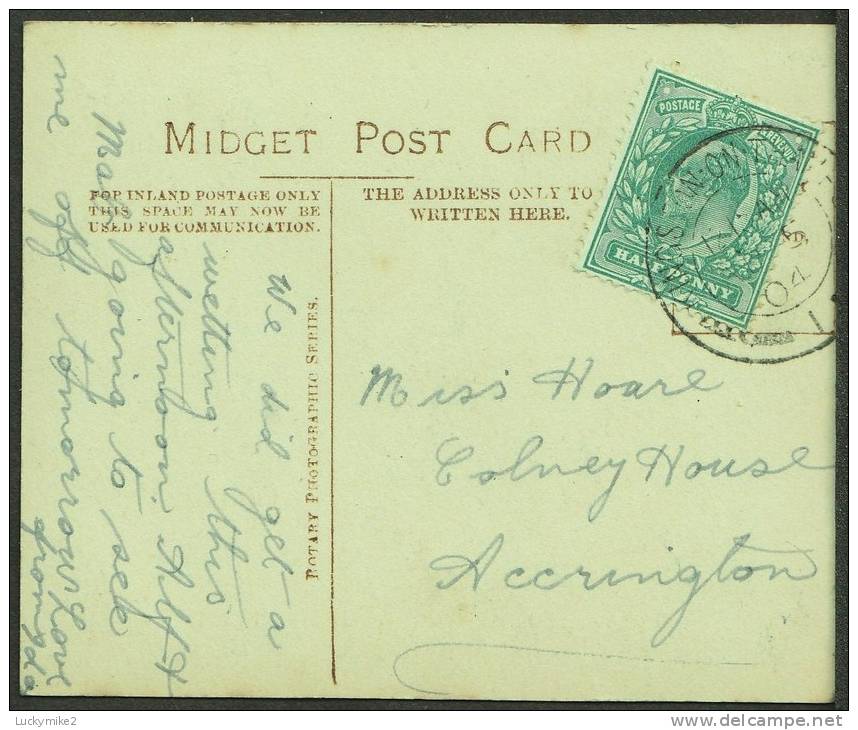 MIDGET POST CARD
FOR INLAND POSTAGE ONLY
THIS SPACE MAY NOW BE
USED FOR COMMUNICATION.
THE ADDRESS ONLY TO
WRITTEN HERE.
POSTAGE
HALFPENNY
04
ROTARY PHOTOGRAPHIC SERIES.
We did get a
wetting this
afternoon. Alf &
Mam going to see
me off tomorrow
Love
from Ida
Miss Hoare
Colney House
Accrington
Luckymike2
delcampe.net